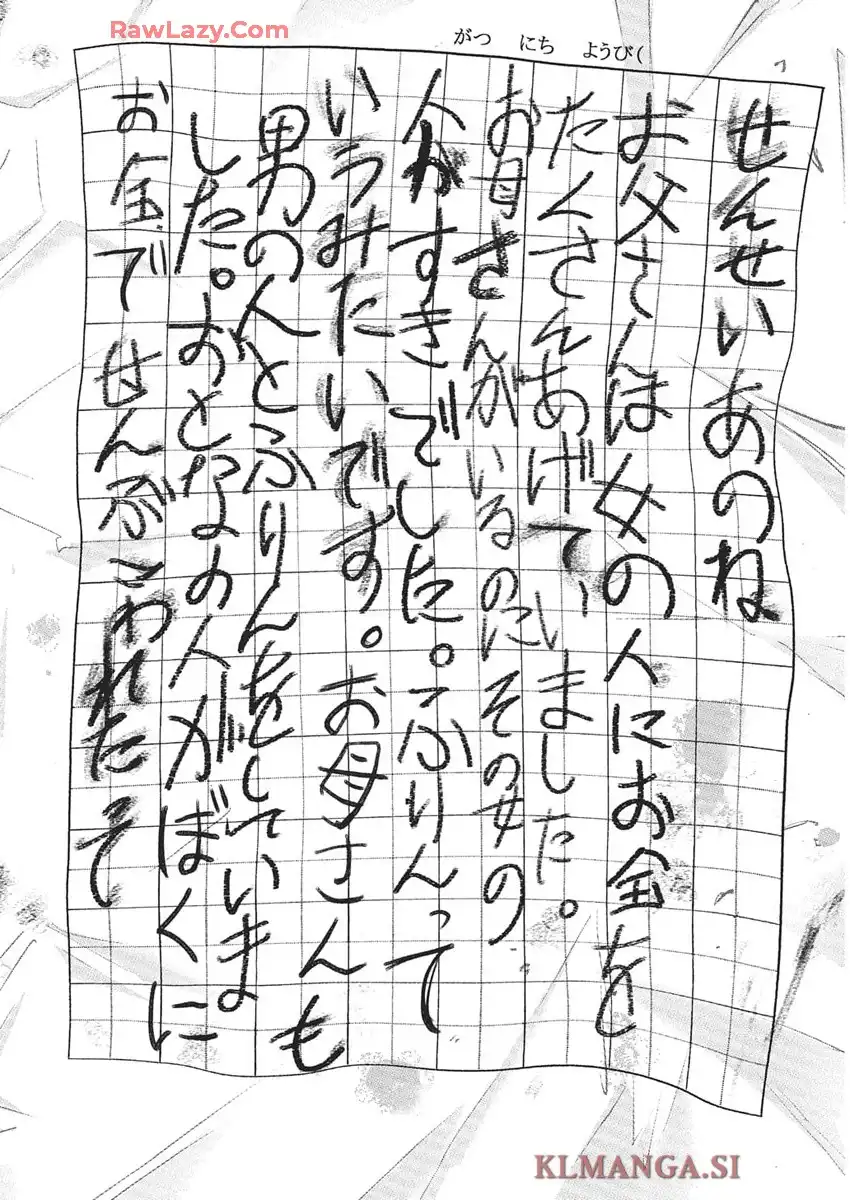 RawLazy.Com
がつ　にち　ようび(
せんせいあのね
お父さんは女の人にお金を
たくさんあげていました。
お母さんがいるのにその女の
人がすきでした。ふりんって
いうみたいです。お母さんも
男の人とふりんをしていま
した。おとなの人がぼくに
お金でせんぶこわれたそ
KLMANGA.SI